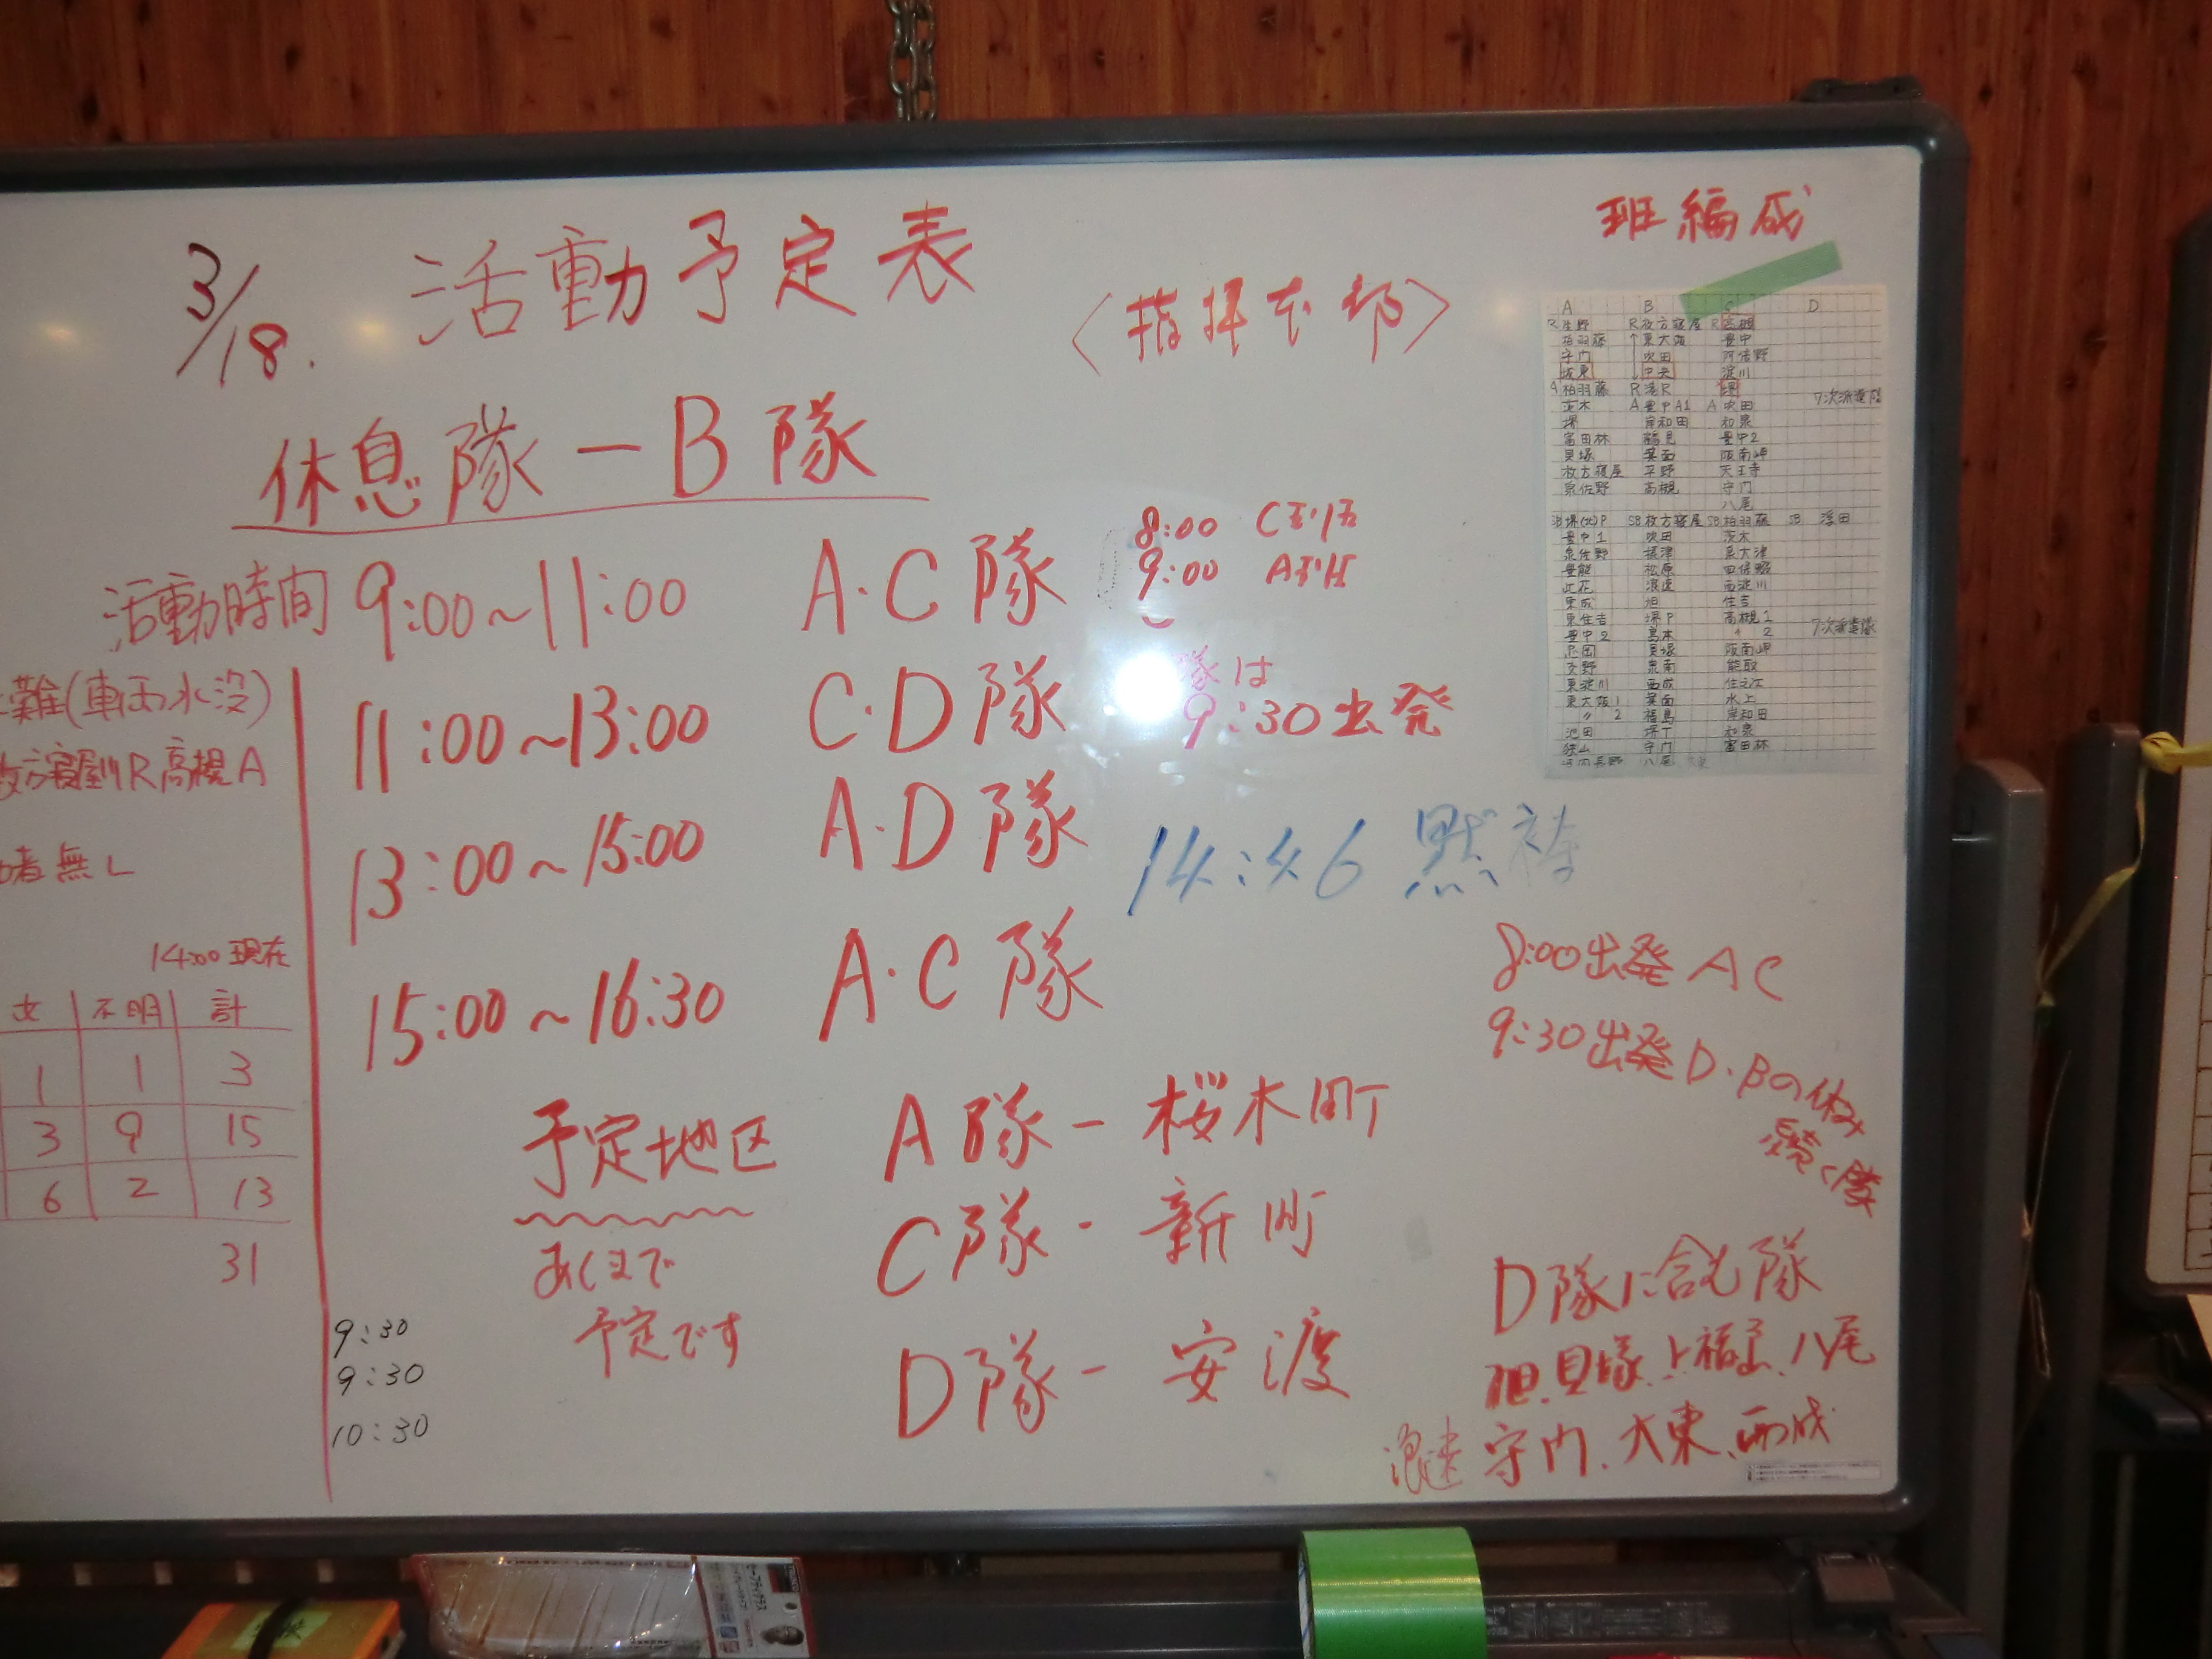 3/18. 活動予定表
〈指揮本部〉
班編成
休息隊 - B隊
活動時間 9:00~11:00 A・C隊
8:00
9:00
11:00~13:00 C・D隊
隊は
9:30出発
13:00~15:00 A・D隊
14:46 黙祷
15:00~16:30 A・C隊
8:00出発 A C
9:30出発 D・Bの休み
続く隊
予定地区
あくまで
予定です
A隊 - 桜木町
C隊 - 新町
D隊 - 安渡
D隊に含む隊
旭、貝塚、福島、八尾
浪速 守門、大東、西成
難(車両水没)
枚方寝屋川R高槻A
者無し
14:00現在
女 不明 計
1 1 3
3 9 15
6 2 13
31
9:30
9:30
10:30
A B C D
R生野 R枚方寝屋 R高槻
柏羽藤 東大阪 豊中
守門 吹田 阿倍野
中央 淀川
A柏羽藤 R
茨木 A豊中A1 A吹田 7次派遣隊
堺 岸和田 和泉
富田林 鶴見 豊中2
貝塚 箕面 阪南岬
枚方寝屋 平野 天王寺
泉佐野 高槻 守門
八尾
SB枚方寝屋 SB柏羽藤 SB
豊中1 吹田 茨木
泉佐野 摂津 泉大津
豊能 松原
此花 浪速 西淀川
東成 旭 住吉
東住吉 堺P 高槻1
豊中2 島本 〃 2 7次派遣隊
忠岡 貝塚 阪南岬
交野 泉南 熊取
東淀川 西成 住之江
東大阪1 箕面 水上
〃 2 福島 岸和田
池田 和泉
狭山 守門 富田林
河内長野 八尾